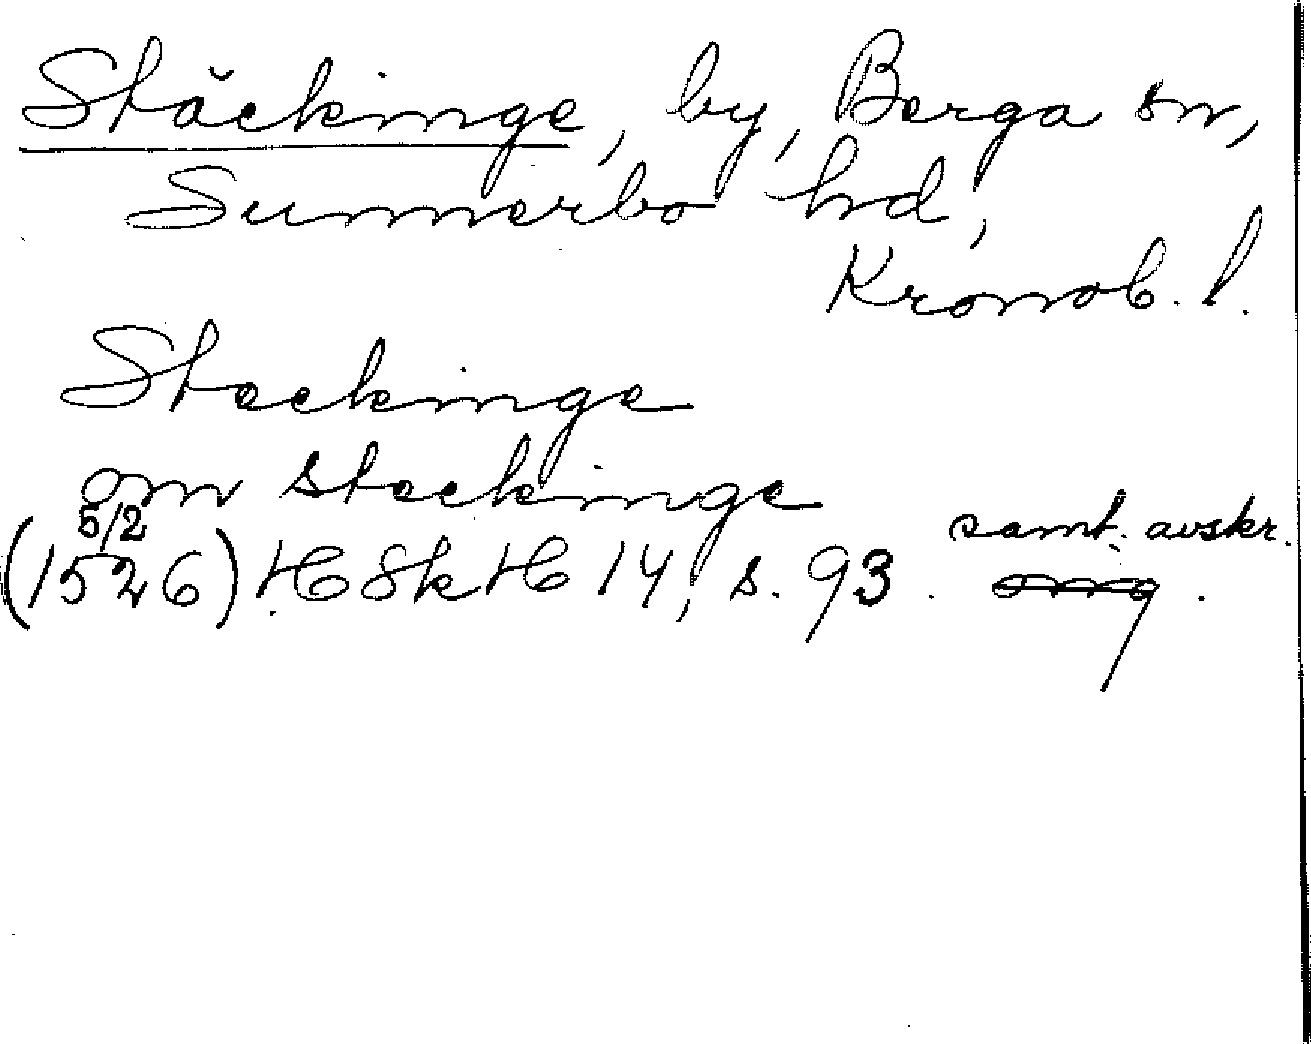 Stäckinge, by, Berga sn,
Sunnerbo hd,
Kronob. l.
Steckinge
om steckinge
5/2
(1526) HSkH 14, s. 93. samt. avskr.